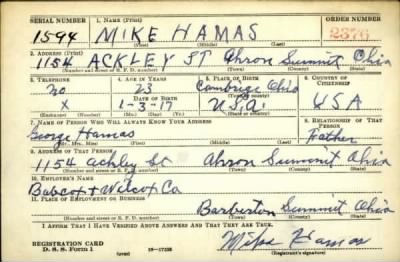 SERIAL NUMBER 1. NAME (Print) ORDER NUMBER
1594 MIKE HAMAS 2376
(First) (Middle) (Last)
2. ADDRESS (Print)
1154 ACKLEY ST Akron Summit Ohio
(Number and street or R. F. D. number) (Town) (County) (State)
3. TELEPHONE 4. AGE IN YEARS 5. PLACE OF BIRTH 6. COUNTRY OF CITIZENSHIP
no 23 Cambrige Ohio
(Town or county)
X DATE OF BIRTH 1-3-17 U.S.A. USA
(Exchange) (Number) (Mo.) (Day) (Yr.) (State or country)
7. NAME OF PERSON WHO WILL ALWAYS KNOW YOUR ADDRESS 8. RELATIONSHIP OF THAT PERSON
George Hamas Father
(Mr., Mrs., Miss) (First) (Middle) (Last)
9. ADDRESS OF THAT PERSON
1154 Ackley St Akron Summit Ohio
(Number and street or R. F. D. number) (Town) (County) (State)
10. EMPLOYER'S NAME
Babcox + Wilcox Co
11. PLACE OF EMPLOYMENT OR BUSINESS
Barberton Summit Ohio
(Number and street or R. F. D. number) (Town) (County) (State)
I AFFIRM THAT I HAVE VERIFIED ABOVE ANSWERS AND THAT THEY ARE TRUE.
REGISTRATION CARD
D. S. S. Form 1 (over) Mike Hamas
(Registrant's signature)